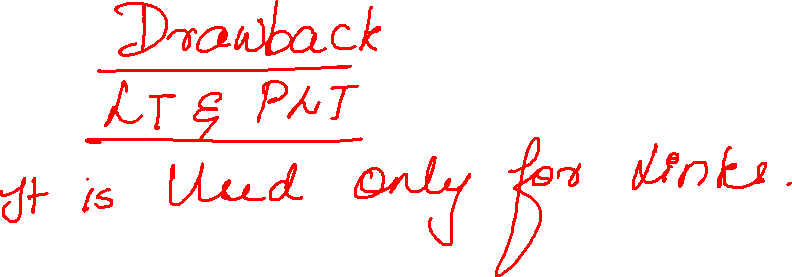 Drawback
LT & PLT
It is Used only for Links.